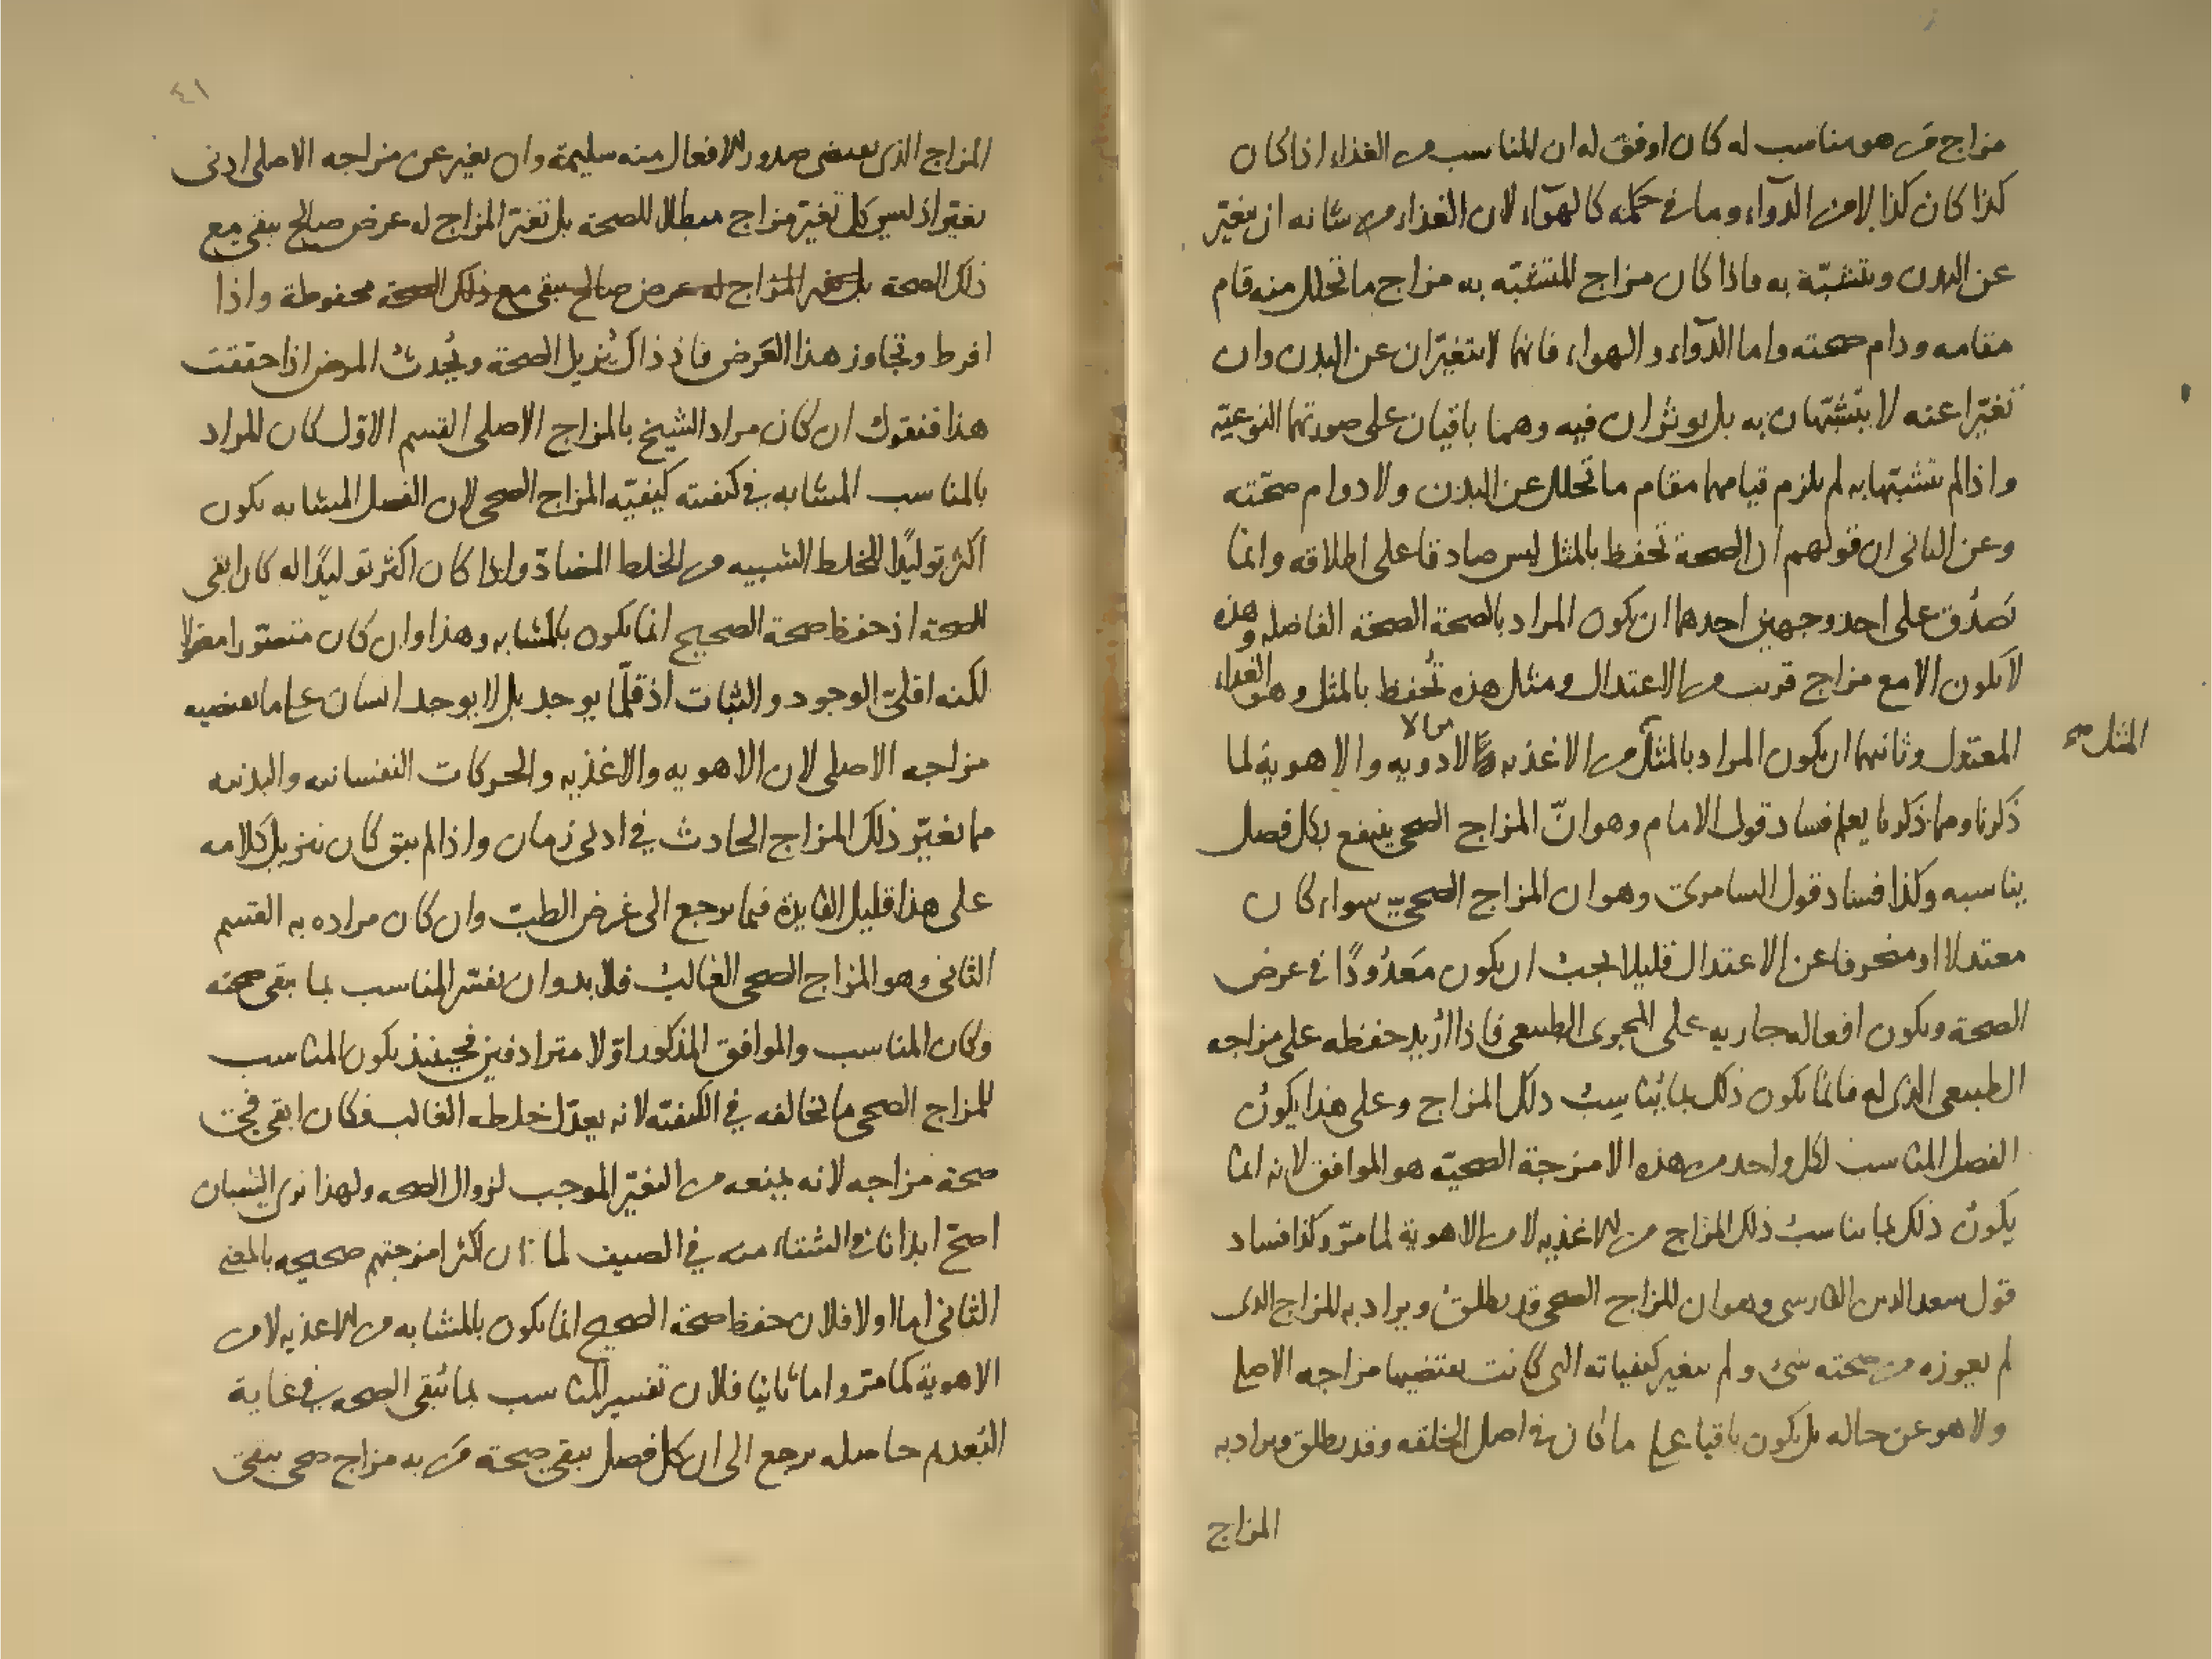 مزاج من هو مناسب له كان اوفق له ان المناسب من الغذاء اذا كان
كذا كان كذا لا من الدوآء وما في حكمه كالهوآء لان الغذاء من شانه ان يتغيّر
عن البدن ويتشبّه به فاذا كان مزاج المتشبّه به مزاج ما تحلل منه قام
مقامه ودام صحته واما الدوآء والهواء فانهما لا يتغيّران عن البدن وان
تغيّرا عنه لا يتشبّهان به بل يوثران فيه وهما باقيان على صورتهما النوعيّه
واذا لم يتشبّها به لم يلزم قيامهما مقام ما تحلل عن البدن ولا دوام صحّته
وعن الثانى ان قولهم ان الصحة تحفظ بالمثل ليس صادقا على اطلاقه وانما
تصدُق على احد وجهين احدهما ان يكون المراد بالصحة الصحة الفاضله وهذه
لا يكون الا مع مزاج قريب من الاعتدال ومثل هذه تُحفظ بالمثل وهو الغذاء
المعتدل وثانيهما ان يكون المراد بالمثل من الاغذيه من لا الادويه والاهوية لما
المثل صح
ذكرنا ومما ذكرنا يعلم فساد قول الامام وهو انّ المزاج الصحى ينتفع بكل فصل
يناسبه وكذا فساد قول السامرى وهو ان المزاج الصحى سواء كان
معتدلا او منحرفا عن الاعتدال قليلا يجب ان يكون مَعدُودًا فى عرض
الصحة ويكون افعاله جاريه على المجرى الطبيعى فاذا اُريد حفظه على مزاجه
الطبيعى الذى له فانما يكون ذلك بما يُناسِبُ ذلك المزاج وعلى هذا يكونُ
الفصل المناسب لكل واحد من هذه الامزجة الصحيّه هو الموافق لانه انما
يكونُ ذلك بما يناسبُ ذلك المزاج من الاغذيه لا من الاهوية لما مرّ وكذا فساد
قول سعد الدين الفارسى وهو ان المزاج الصحى قد يطلقُ ويراد به المزاج الذى
لم يعوزه من صحته شئ ولم يتغير كيفياته التى كانت يقتضيها مزاجه الاصلى
ولا هو عن حاله بل يكون باقيا على ما كان فى اصل الخلقه وقد يطلق ويراد به
المزاج
٤١
المزاج الذى يقتضى صدور الافعال منه سليمة وان تغير عن مزاجه الاصلى ادنى
تغيّر اذ ليس كل تغيّر مزاج مبطلا للصحة بل تغيّر المزاج له عرض صالح يبقى مع
ذلك الصحة بل تغير المزاج له عرض صالح يبقى مع ذلك الصحة محفوطة واذا
افرط وتجاوز هذا العَرض فاذ ذاك يُزيل الصحة ويُحدث المرض اذا حققت
هذا فنقول ان كان مراد الشيخ بالمزاج الاصلى القسم الاوّل كان المراد
بالمناسب المشابه فى كيفيته كيفيّه المزاج الصحى لان الفصل المشابه يكون
اكثر توليدًا للخلط الشبيه من الخلط المضادّ واذا كان اكثر توليدًا له كان ابقى
للصحة اذ حفظ صحة الصحيح انما يكون بالمشابه وهذا وان كان متصوّرا مقولا
لكنه اقلىّ الوجود والثبات اذ قلّما يوجد بل لا يوجد انسان على ما يقتضيه
مزاجه الاصلى لان الاهويه والاغذيه والحركات النفسانيه والبدنيه
مما يغيّر ذلك المزاج الحادث في ادنى زمان واذا لم يبق كان تنزيل كلامه
على هذا قليل الفايدة فيما يرجع الى غرض الطبّ وان كان مراده به القسم
الثانى وهو المزاج الصحى الغالبُ فلا بد وان يفسّر المناسب بما يبقى صحته
وكان المناسب والموافق المذكور اوّلا مترادفين فحينئذ يكون المناسب
للمزاج الصحى ما يخالفه فى الكيفيّه لانه يعدّل خلطه الغالب فكان ابقى
صحة مزاجه لانه يمنعه من التغيّر الموجب لزوال الصحه ولهذا نرى الشبان
اصحّ ابدانا فى الشتاء منه في الصيف لما ان اكثر امزجتهم صحيحه بالمعنى
الثانى اما اولا فلان حفظ صحة الصحيح انما يكون بالمشابه من الاغذيه لا من
الاهوية كما مرّ واما ثانيا فلان تفسير المناسب بما يُبقى الصحه فى غاية
البُعد حاصله يرجع الى ان كل فصل يبقى صحة من به مزاج صحى يبقى